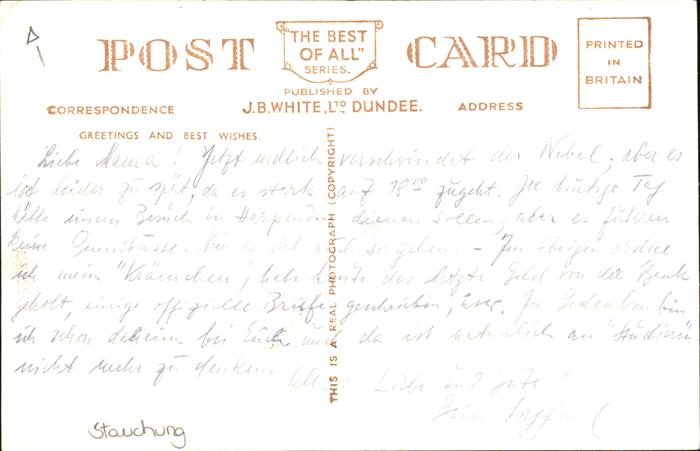 POST CARD
"THE BEST
OF ALL"
SERIES.
PRINTED
IN
BRITAIN
PUBLISHED BY
J.B. WHITE, LTD., DUNDEE.
CORRESPONDENCE
ADDRESS
GREETINGS AND BEST WISHES.
THIS IS A REAL PHOTOGRAPH (COPYRIGHT)
Liebe Mama! Jetzt endlich verschwindet der Nebel, aber es
ist leider zu spät, da es stark auf 18 00 zugeht. Der heutige Tag
hätte unserm Besuch in Harpenden dienen sollen, aber es fuhren
keine Omnibusse. Nun es wird auch so gehen - Im übrigen ordne
ich mein "Krämchen", hab heute das letzte Geld von der Bank
geholt, einige offizielle Briefe geschrieben, usw. In Gedanken bin
ich schon daheim bei Euch und da ist natürlich an "Studieren"
nicht mehr zu denken.
Alles Liebe und Gute!
Stauchung